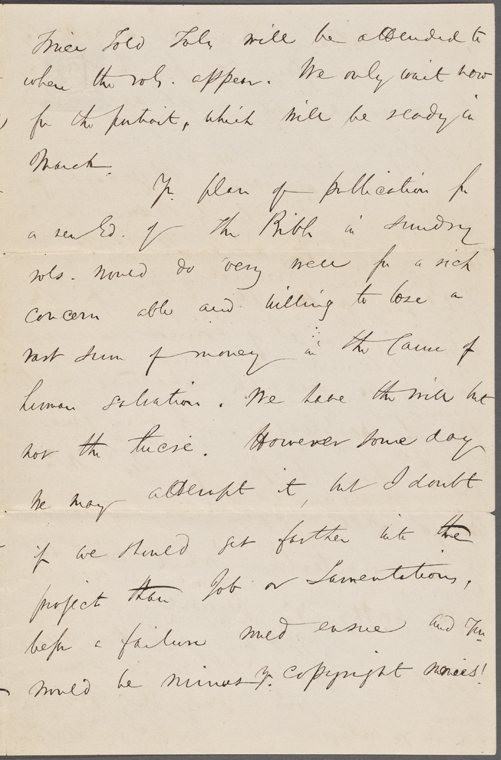 Twice Told Tales will be attended to
when the vols. appear. We only wait now
for the portrait, which will be ready in
March.
Yr. plan of publication for
a new Ed. of the Bible in sundry
vols. would do very well for a rich
concern able and willing to lose a
vast sum of money in the Cause of
human salvation. We have the will but
not the lucre. However some day
we may attempt it, but I doubt
if we should get farther into the
project than Job or Lamentations,
before a failure would ensue and you
would be minus yr. copyright monies!